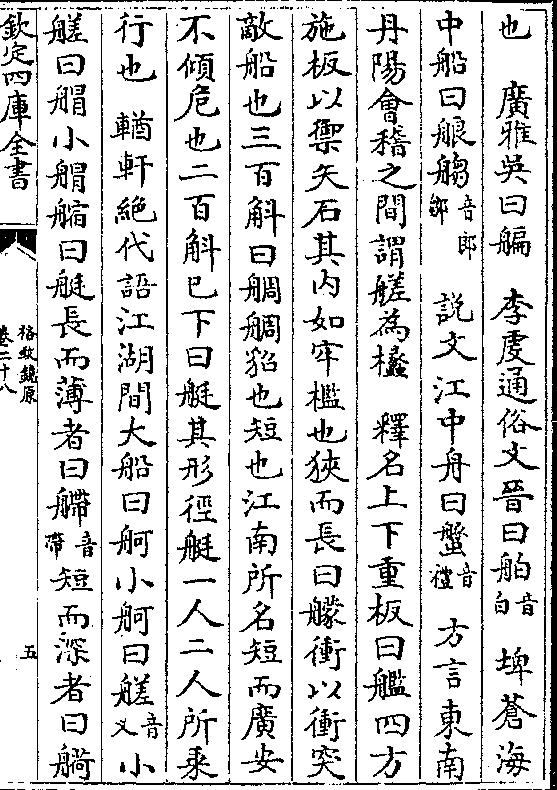 也　廣雅吳曰艑　李虔通俗文晉曰舶音白　埤蒼海
中船曰艆䑹音郎鄒　說文江中舟曰蠡音禮　方言東南
丹陽會稽之間謂艖為欚　釋名上下重板曰艦四方
施板以禦矢石其内如牢檻也狹而長曰艨衝以衝突
敵船也三百斛曰䑼䑼貂也短也江南所名短而廣安
不傾危也二百斛巳下曰艇其形徑艇一人二人所乘
行也　輶軒絶代語江湖間大船曰舸小舸曰艖音义小
艖曰艒小艒䑿曰艇長而薄者曰艜音帶短而深者曰䑠
欽定四庫全書
格致鏡原
卷二十八
五